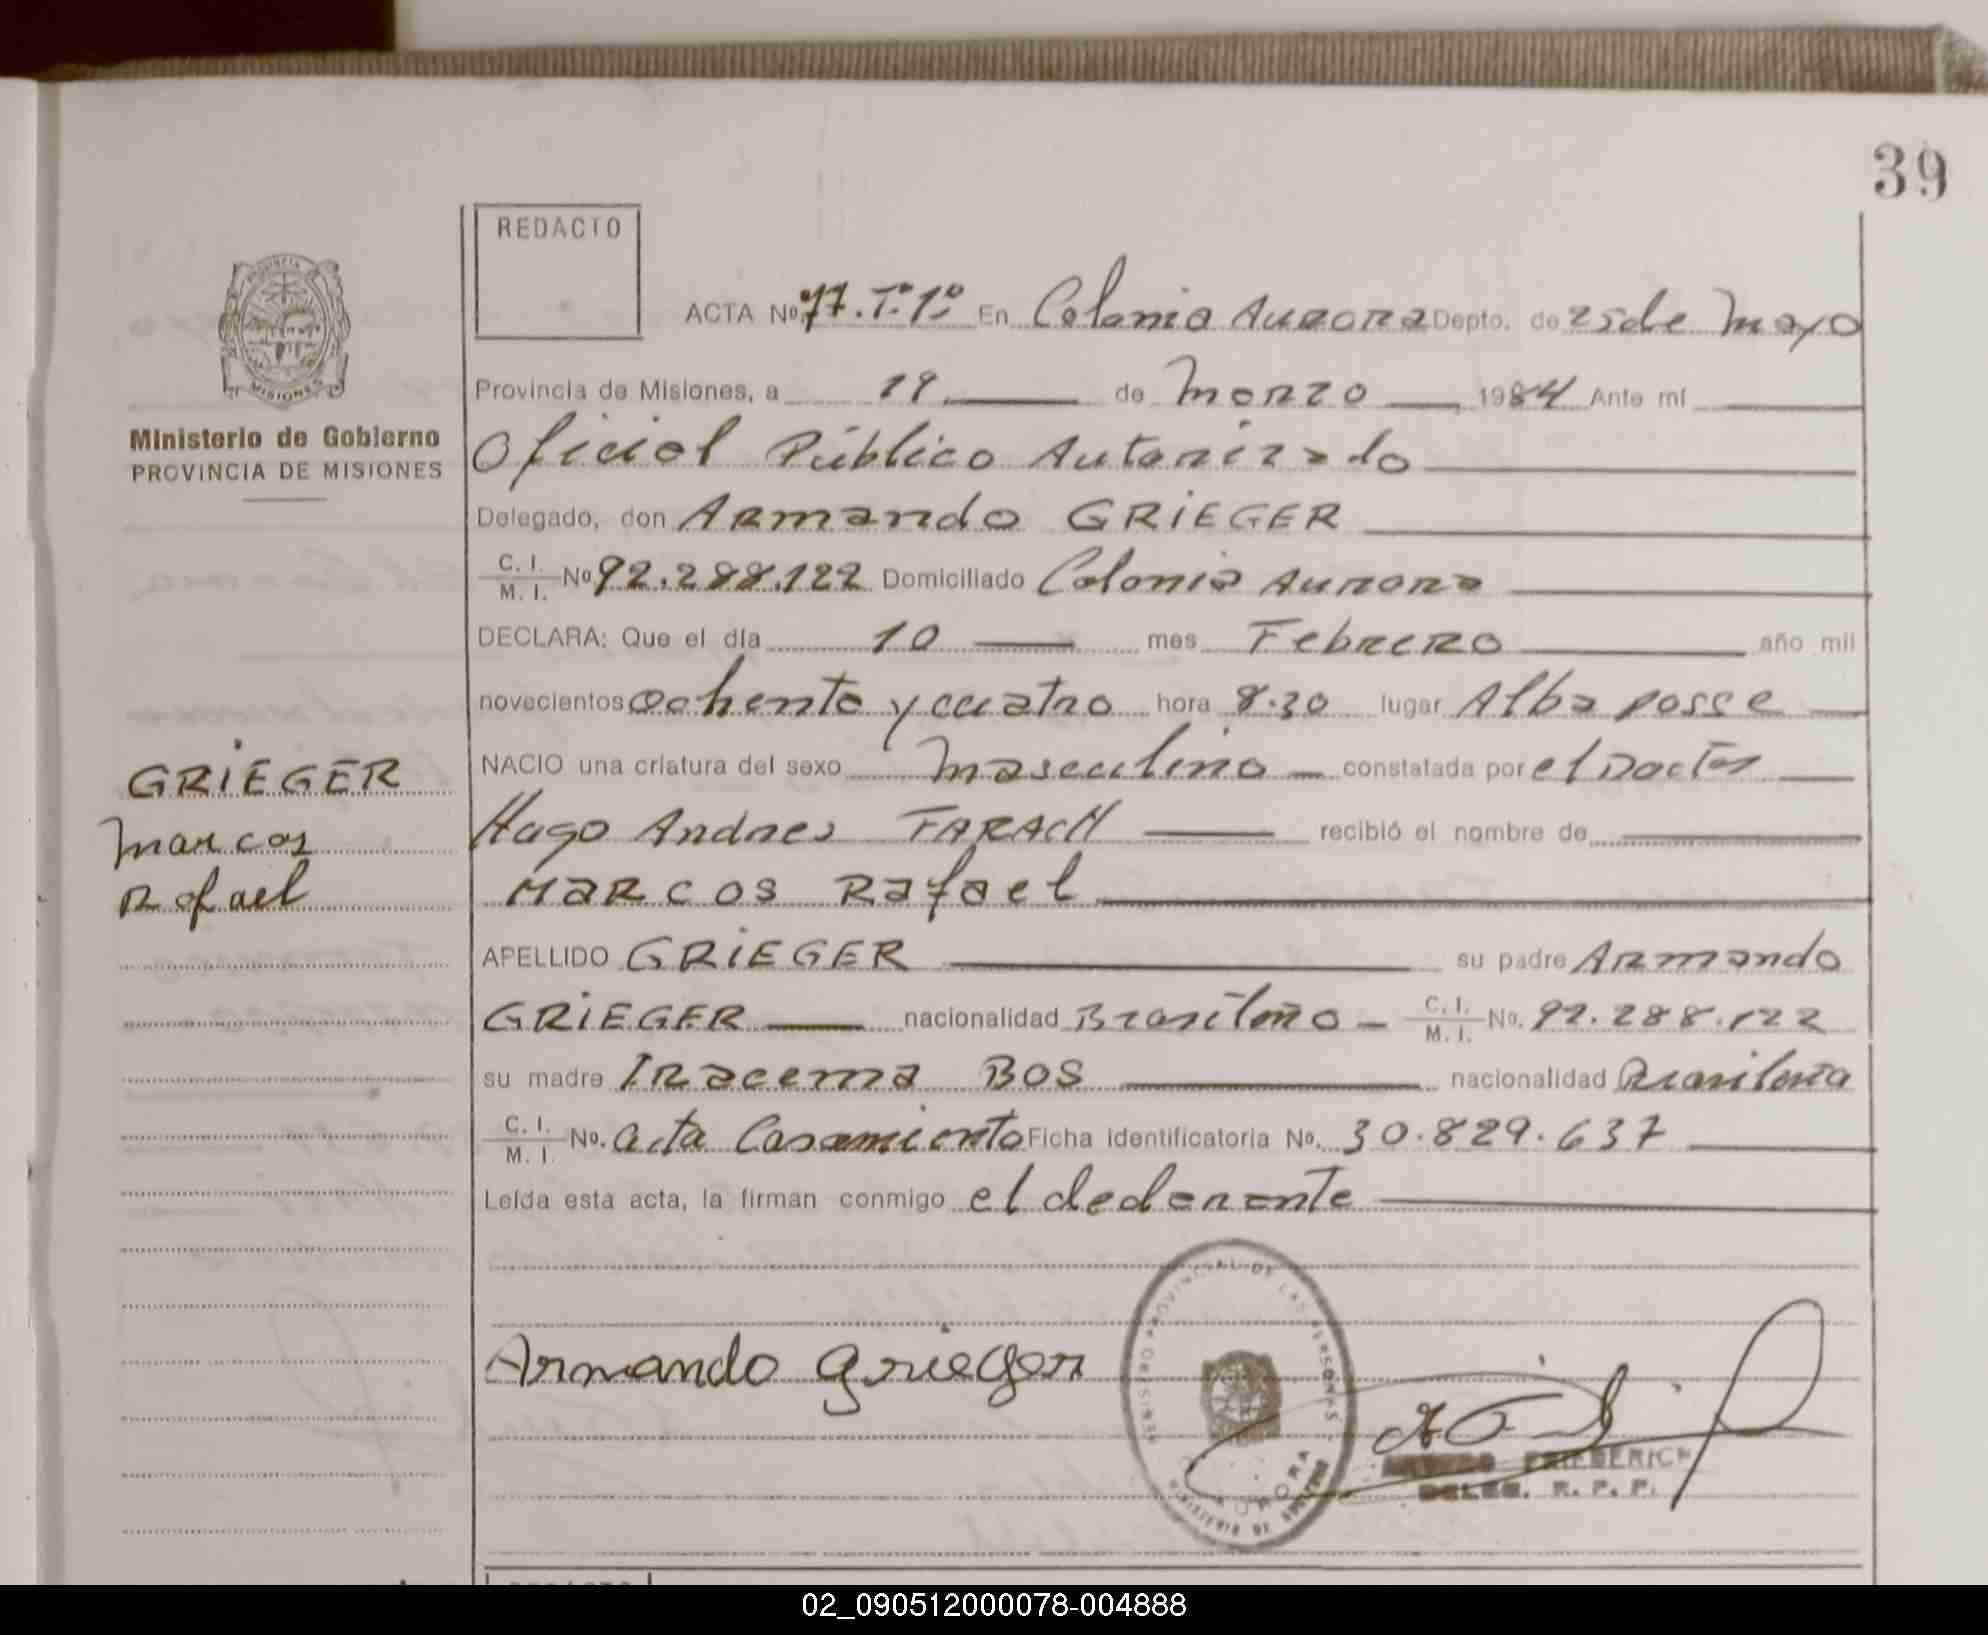 39
REDACTO
ACTA No. 77.Tº.1º En Colonia Aurora Depto. de 25 de Mayo
PROVINCIA
MISIONES
Provincia de Misiones, a 19 de Marzo 1984 Ante mí
Ministerio de Gobierno
PROVINCIA DE MISIONES
Oficial Público Autorizado
Delegado, don Armando GRIEGER
C. I.
M. I. No. 92.288.122 Domiciliado Colonia Aurora
DECLARA: Que el día 10 mes Febrero año mil
novecientos ochenta y cuatro hora 8.30 lugar Alba posse
GRIEGER
Marcos
Rafael
NACIO una criatura del sexo Masculino constatada por el Doctor
Hugo Andres FARACH recibió el nombre de
MARCOS Rafael
APELLIDO GRIEGER su padre Armando
GRIEGER nacionalidad Brasileño C. I.
M. I. No. 92.288.122
su madre Iracema BOS nacionalidad Brasileña
C. I.
M. I. No. acta Casamiento Ficha Identificatoria No. 30.829.637
Leída esta acta, la firman conmigo el declarante
Armando Grieger
PROVINCIAL DE LAS PERSONAS
AURORA
MINISTERIO DE GOBIERNO
FRIEDERICH
DELEG. R. P. P.
02_090512000078-004888